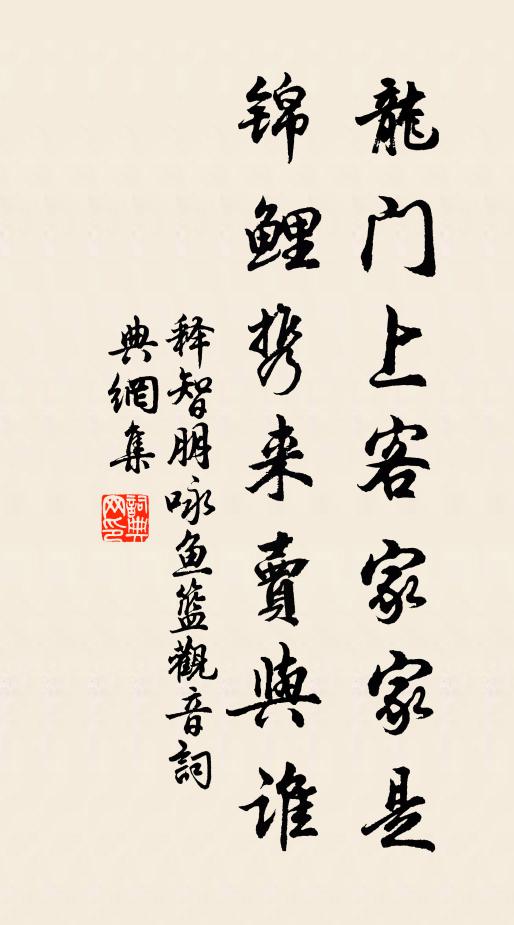 龍门上客家家是
锦鲤携来賣與谁
释智朋咏鱼籃觀音詞
典網集
詞典网印